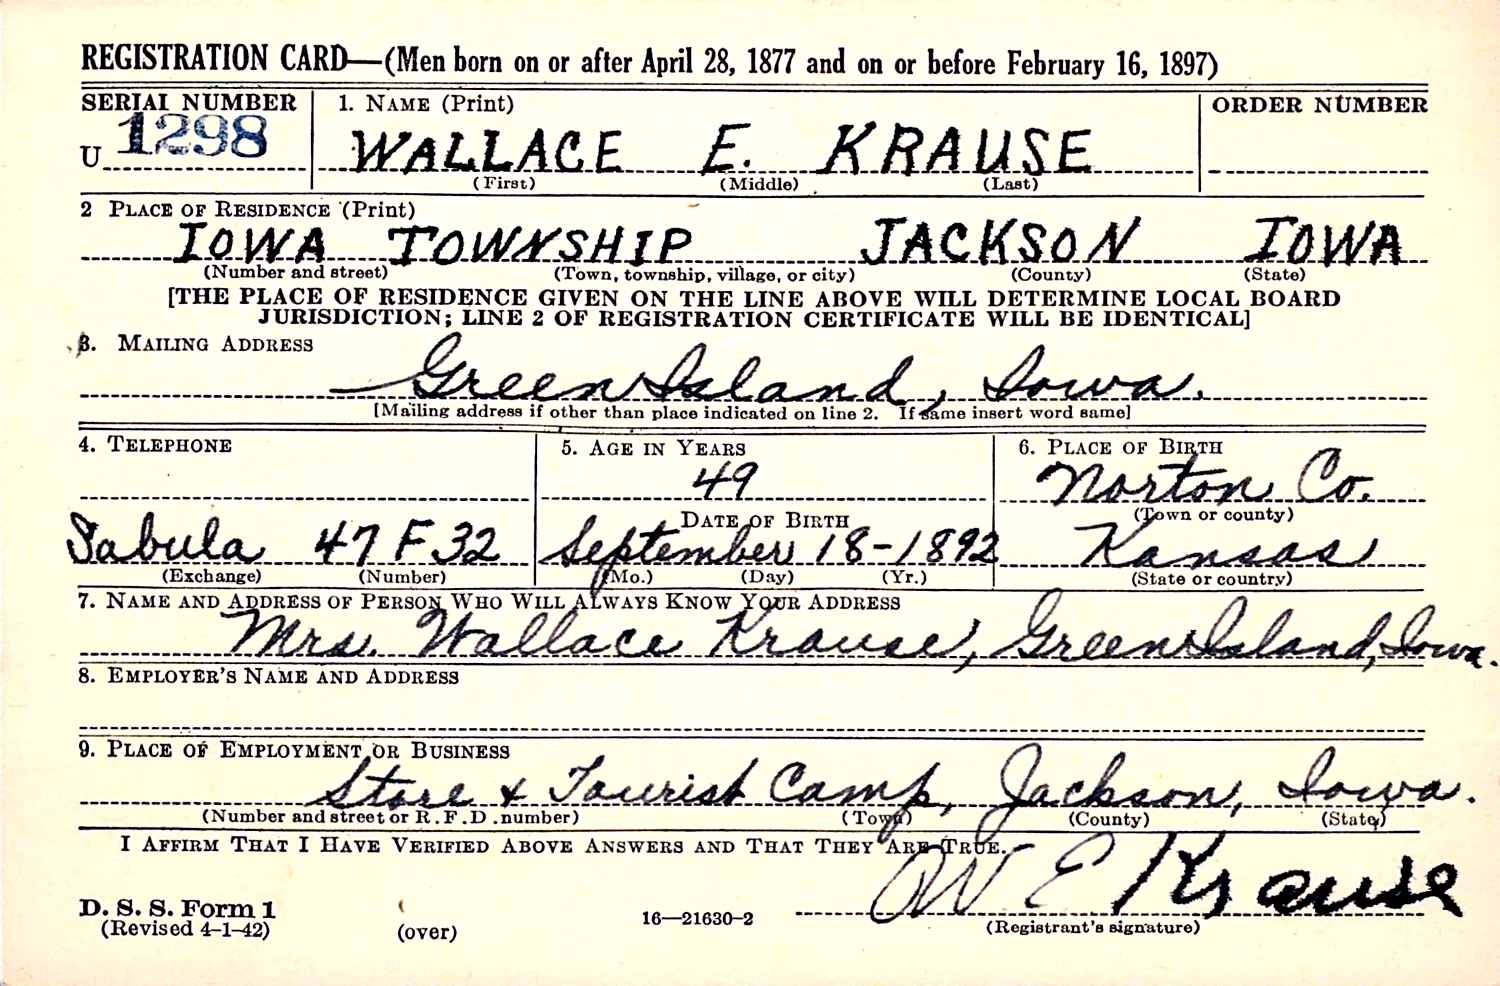 REGISTRATION CARD—(Men born on or after April 28, 1877 and on or before February 16, 1897)
SERIAL NUMBER 1. NAME (Print) ORDER NUMBER
U 1298 WALLACE E. KRAUSE
(First) (Middle) (Last)
2 PLACE OF RESIDENCE (Print)
IOWA TOWNSHIP JACKSON IOWA
(Number and street) (Town, township, village, or city) (County) (State)
[THE PLACE OF RESIDENCE GIVEN ON THE LINE ABOVE WILL DETERMINE LOCAL BOARD
JURISDICTION; LINE 2 OF REGISTRATION CERTIFICATE WILL BE IDENTICAL]
3. MAILING ADDRESS
Green Island, Iowa.
[Mailing address if other than place indicated on line 2. If same insert word same]
4. TELEPHONE 5. AGE IN YEARS 6. PLACE OF BIRTH
49 Norton Co.
DATE OF BIRTH (Town or county)
Sabula 47 F 32 September 18-1892 Kansas
(Exchange) (Number) (Mo.) (Day) (Yr.) (State or country)
7. NAME AND ADDRESS OF PERSON WHO WILL ALWAYS KNOW YOUR ADDRESS
Mrs. Wallace Krause, Green Island, Iowa.
8. EMPLOYER'S NAME AND ADDRESS
9. PLACE OF EMPLOYMENT OR BUSINESS
Store & Tourist Camp, Jackson, Iowa.
(Number and street or R.F.D. number) (Town) (County) (State)
I AFFIRM THAT I HAVE VERIFIED ABOVE ANSWERS AND THAT THEY ARE TRUE.
W E Krause
D. S. S. Form 1
(Revised 4-1-42) (over) 16—21630-2 (Registrant's signature)